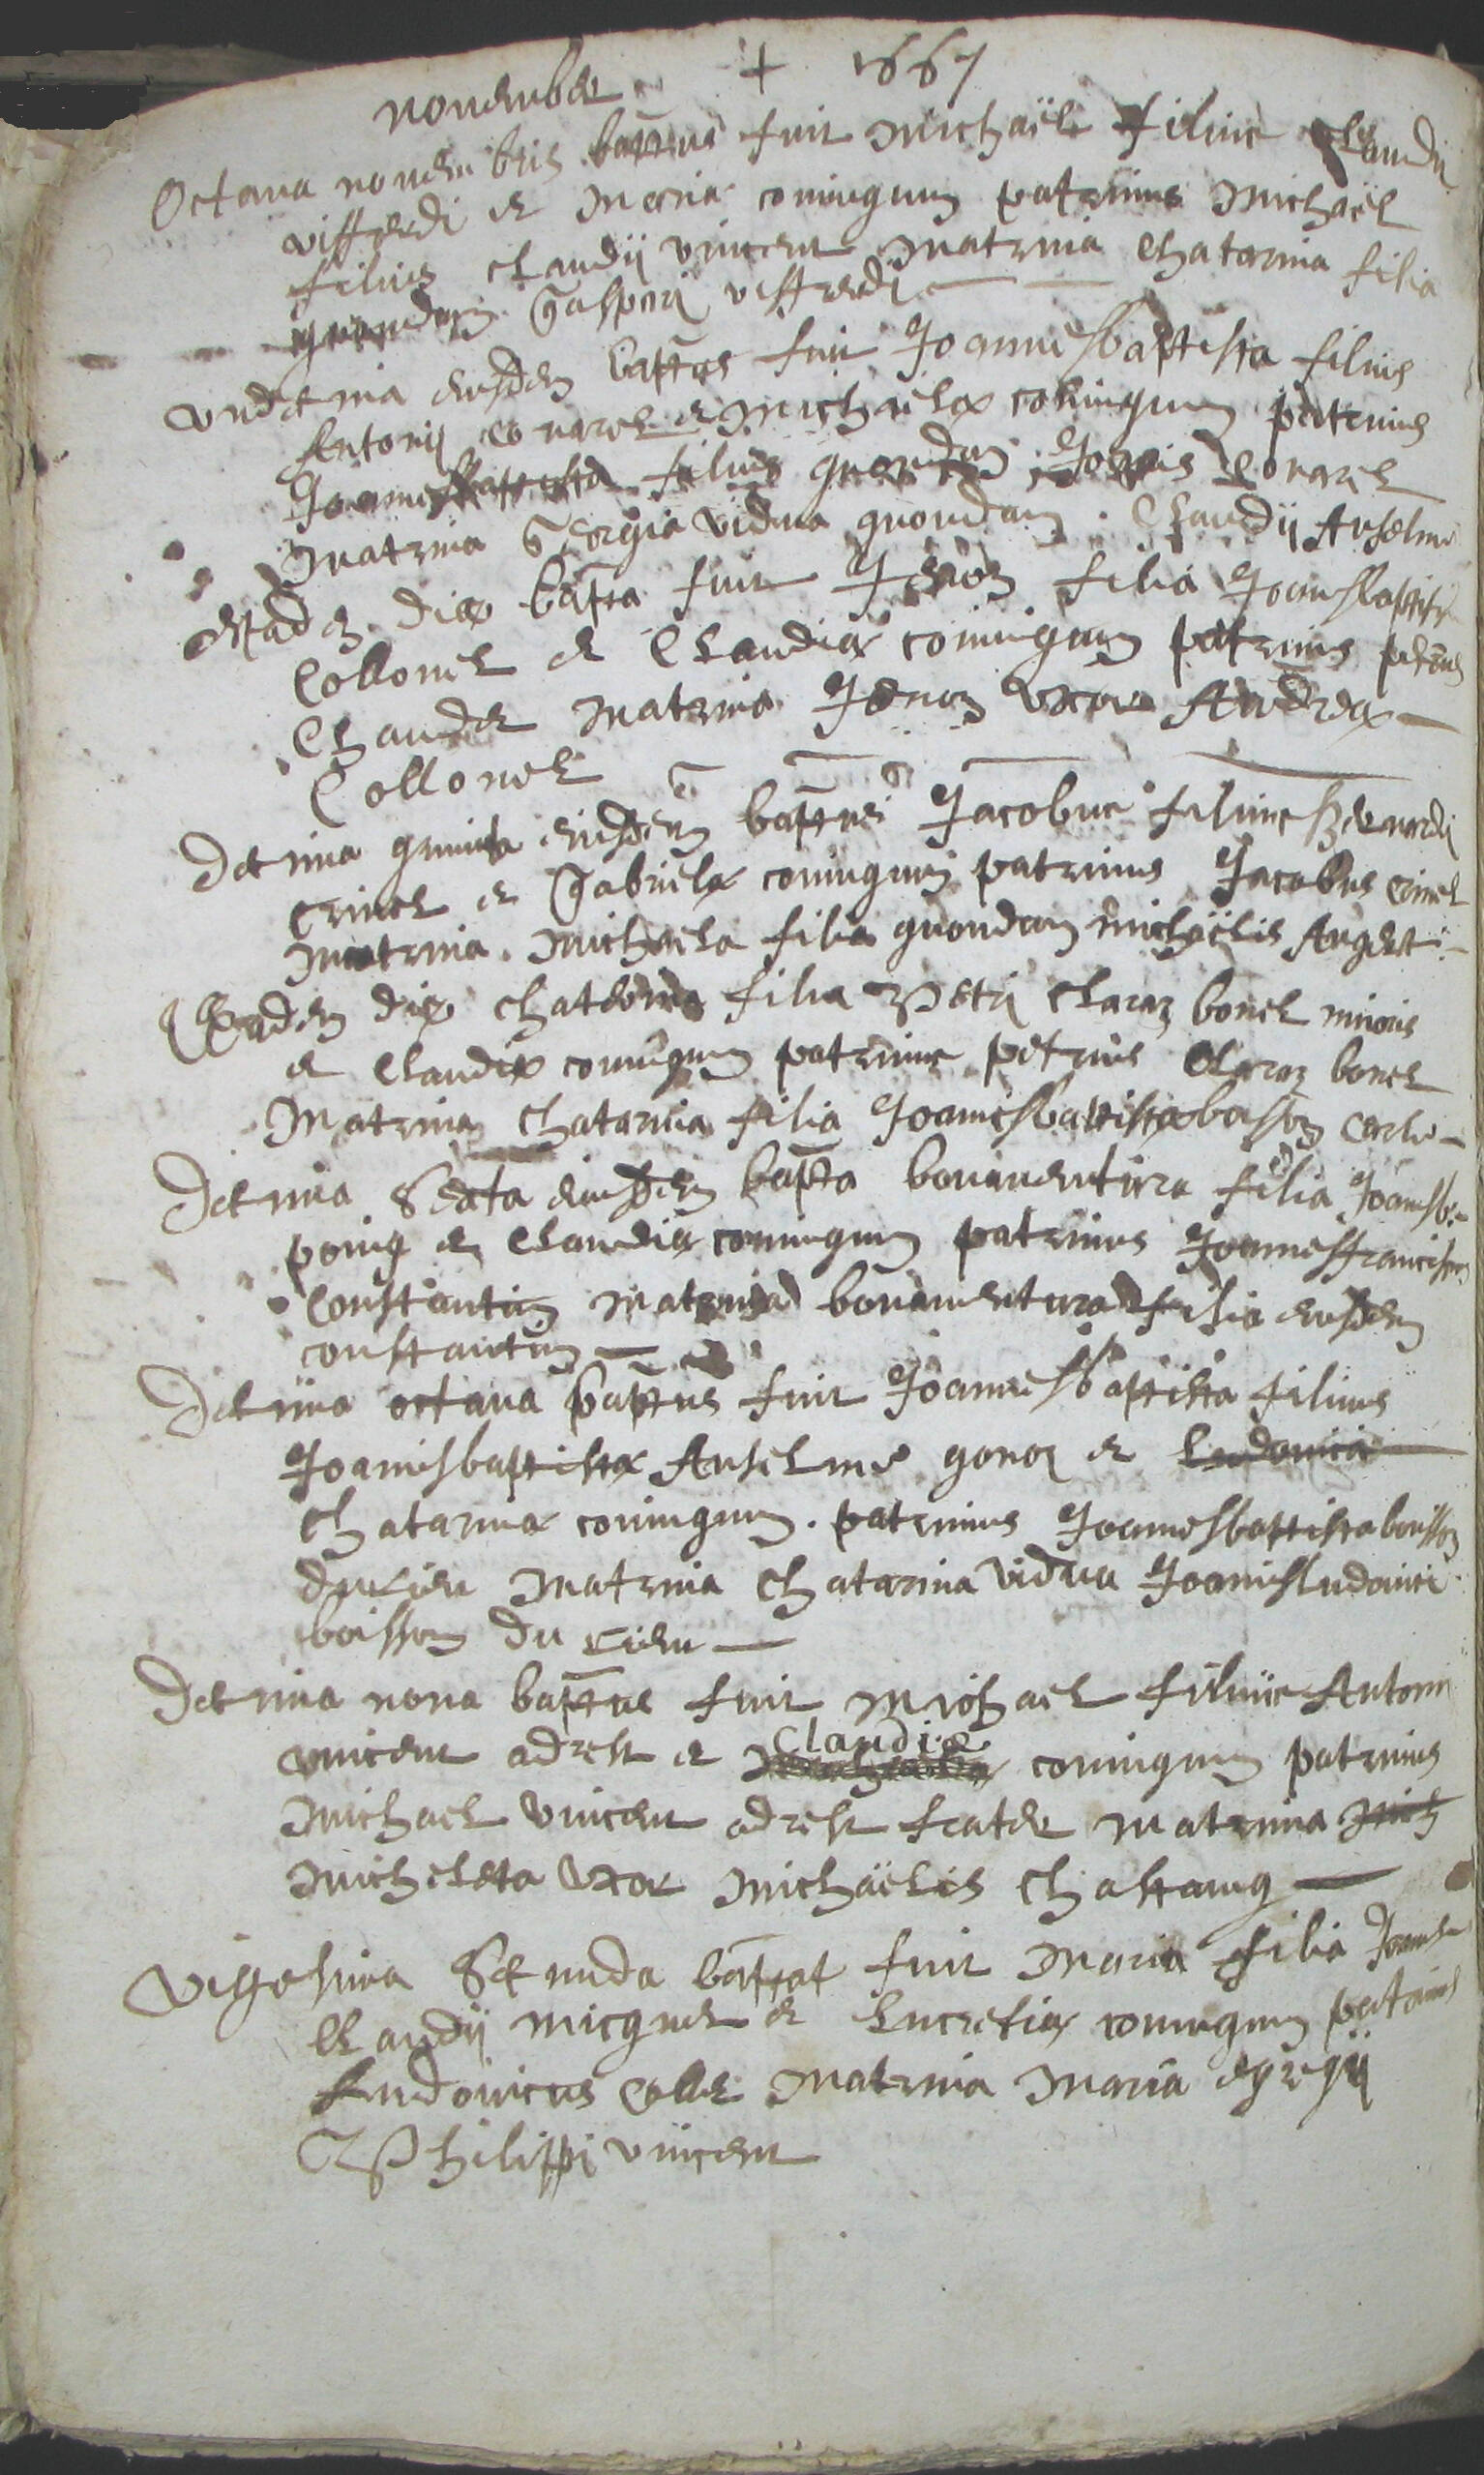 nouember + 1667
Octaua nouembris baptus fuit Michaël filius Claudij
viffredi et Maria coniugum patrinus Michaël
filius Claudij vincent matrina Chatarina filia
quondam Gasparj viffredi
vndecima eiusdem baptus fuit Joannesbaptista filius
Antonij et Michaëlæ coniugum patrinus
Joannesbaptista filius quondam
matrina Georgia vidua quondam Claudij Anselme
eadem die bapta fuit filia Joanisbaptistæ
Collomel et Claudiæ coniugum patrinus petrus
matrina vxor Andreæ
Collomel
Decima quinta eiusdem baptus Jacobus filius Bernardi
et Gabrielæ coniugum patrinus Jacobus
matrina Michaela filia quondam michaëlis
Eadem die Chatarina filia Petri Claraz bonel minoris
et Claudiæ coniugum patrinus petrus Claraz bonel
Matrina Chatarina filia Joanisbaptistæ boisson
Decima sexta eiusdem bapta bonauentura filia
et Claudiæ coniugum patrinus Joannesfranciscus
Constantin matrina bonauentura filia eiusdem
constantin
Decima octaua baptus fuit Joannesbaptista filius
Joanisbaptistæ Anselme et Ludouica
Chatarinæ coniugum. patrinus Joannesbaptista boisson
du rieu matrina Chatarina vidua Joanisludouici
boisson du rieu
Decima nona baptus fuit Michael filius Antonij
vincent et Claudiæ coniugum patrinus
Michael vincent frater matrina Mich
Micheleta vxor Michaëlis
Vigesima secunda baptat fuit Maria filia
Claudij et Lucretiæ coniugum patrinus
Ludouicus matrina Maria egregij
Philippi vincent